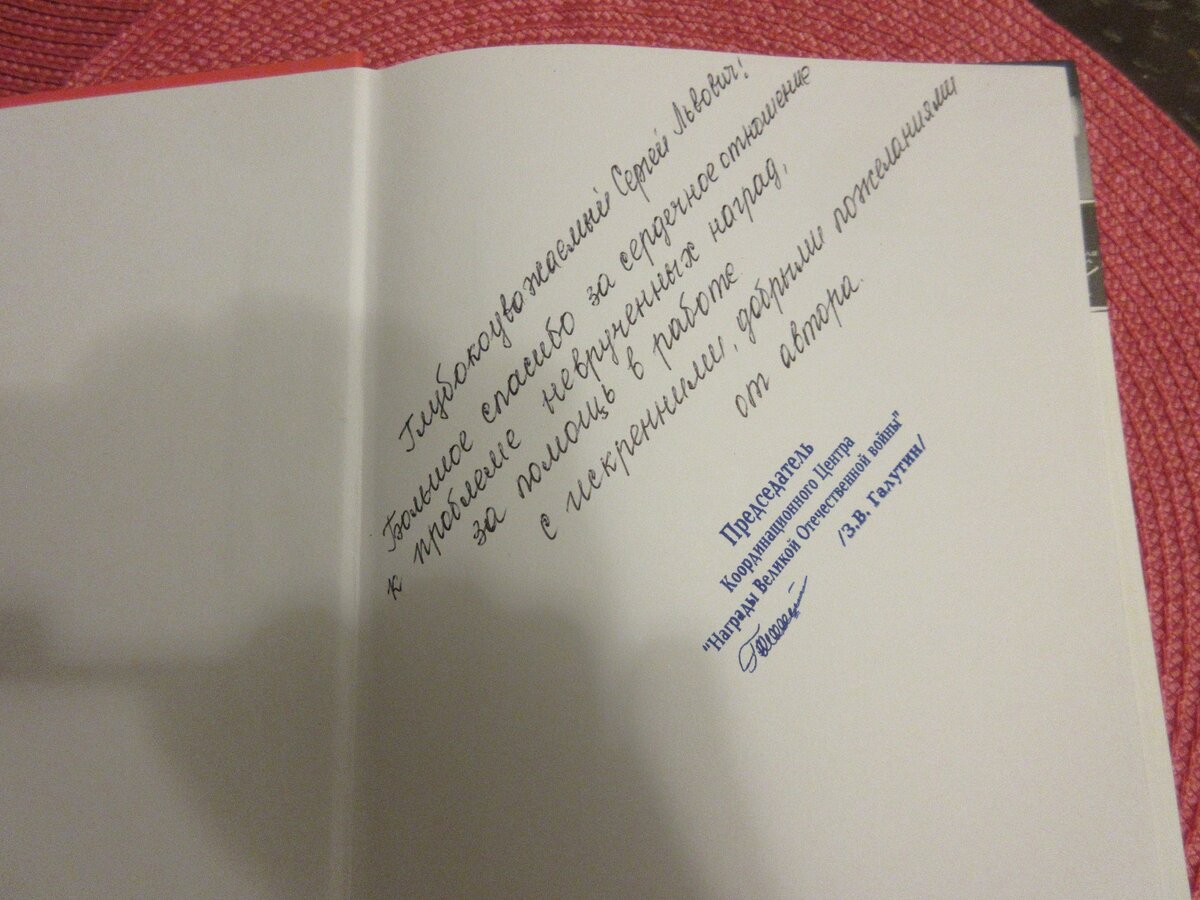 Глубокоуважаемый Сергей Львович!
Большое спасибо за сердечное отношение
к проблеме невручённых наград,
за помощь в работе
с искренними, добрыми пожеланиями
от автора.
Председатель
Координационного Центра
"Награды Великой Отечественной войны"
/З.В. Галутин/